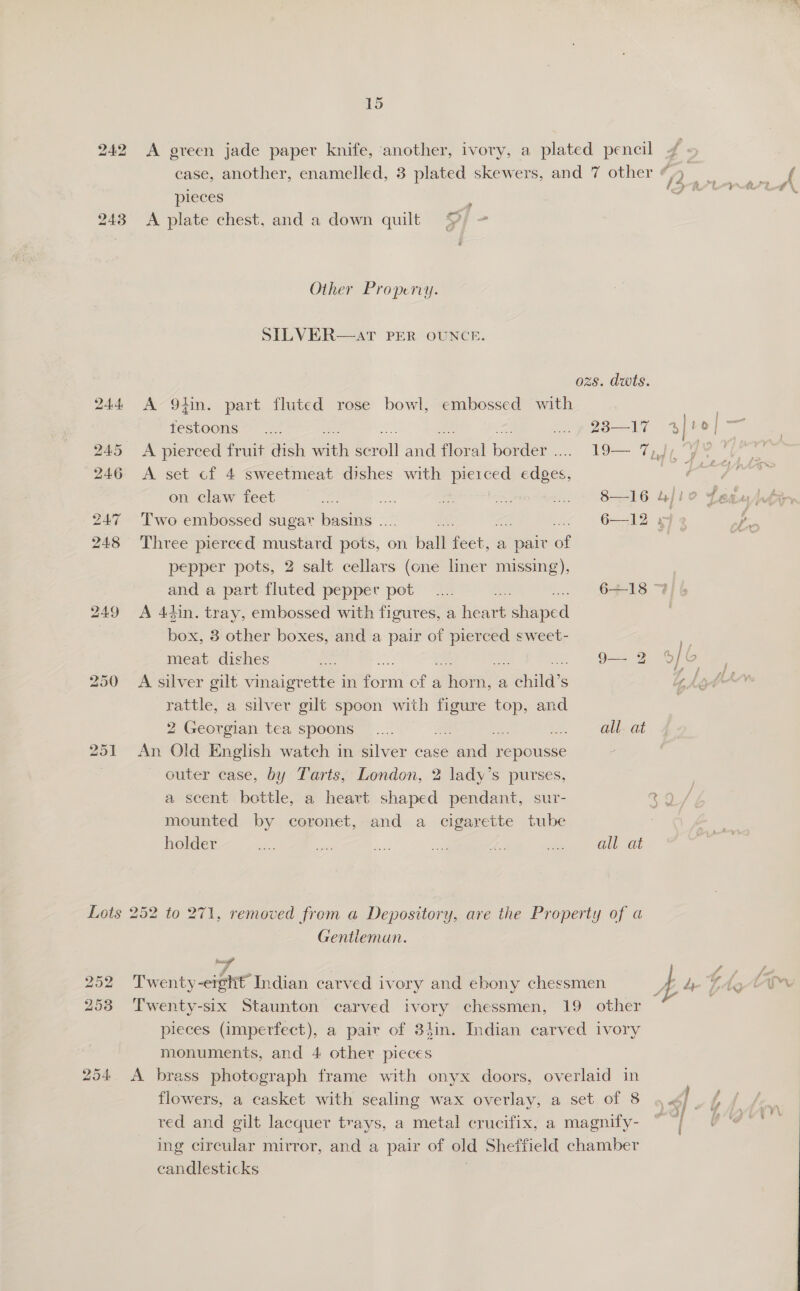 15
242 A green jade paper knife, another, ivory, a plated pencil
case, another, enamelled, 3 plated skewers, and 7 other
pieces
243 A plate chest, and a down quilt
Other Property.
SILVER—AT PER OUNCE.
ozs. dwts.
244 A 9½in. part fluted rose bowl, embossed with
festoons .... .... .... .... .... .... 23—17 4/10/—
245 A pierced fruit dish with scroll and floral border .... 19— 7
246 A set of 4 sweetmeat dishes with pierced edges,
on claw feet .... .... .... .... .... 8—16 4/10
247 Two embossed sugar basins .... .... .... .... 6—12
248 Three pierced mustard pots, on ball feet, a pair of
pepper pots, 2 salt cellars (one liner missing),
and a part fluted pepper pot .... .... .... 6—18
249 A 4½in. tray, embossed with figures, a heart shaped
box, 3 other boxes, and a pair of pierced sweet-
meat dishes .... .... .... .... .... 9— 2 5/6
250 A silver gilt vinaigrette in form of a horn, a child's
rattle, a silver gilt spoon with figure top, and
2 Georgian tea spoons .... .... .... .... all at
251 An Old English watch in silver case and repousse
outer case, by Tarts, London, 2 lady's purses,
a scent bottle, a heart shaped pendant, sur-
mounted by coronet, and a cigarette tube
holder .... .... .... .... .... .... all at
Lots 252 to 271, removed from a Depository, are the Property of a
Gentleman.
252 Twenty-eight Indian carved ivory and ebony chessmen
253 Twenty-six Staunton carved ivory chessmen, 19 other
pieces (imperfect), a pair of 3½in. Indian carved ivory
monuments, and 4 other pieces
254 A brass photograph frame with onyx doors, overlaid in
flowers, a casket with sealing wax overlay, a set of 8
red and gilt lacquer trays, a metal crucifix, a magnify-
ing circular mirror, and a pair of old Sheffield chamber
candlesticks